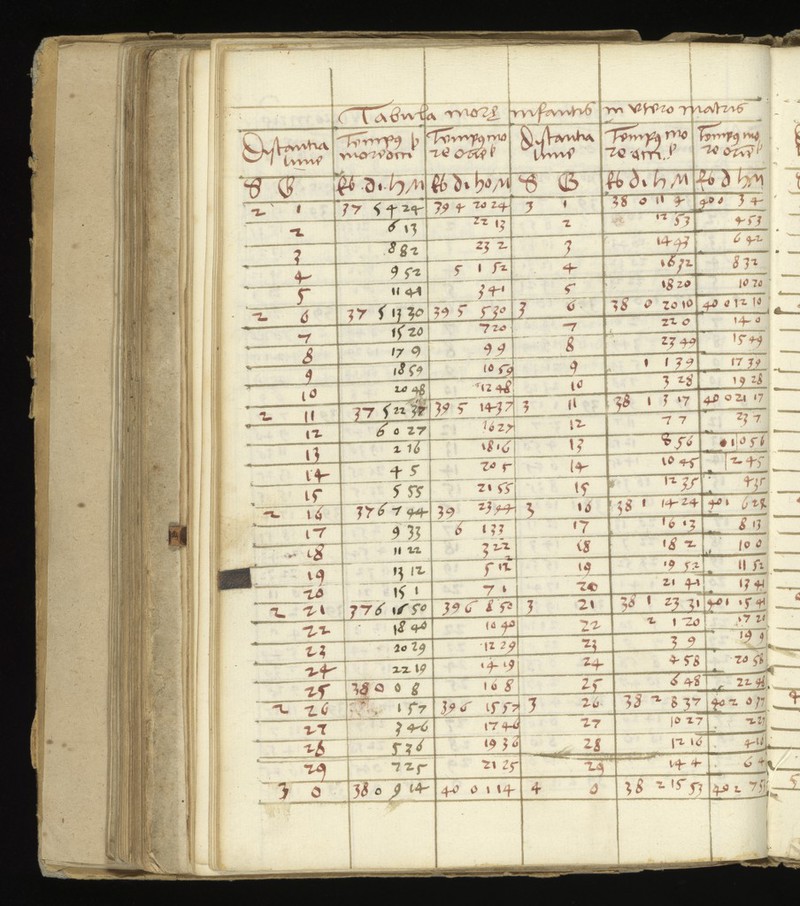 Tabula more infantis in utero matris
Distantia Tempus Tempus mo Distantia Tempus mo Tempus mo
lune more occi re orie lune re occi re orie
S G Eb di h M Eb di ho M S G Eb di h M Eb d h M
2 1 37 5 4 24 39 4 20 24 3 1 38 0 11 4 40 0 3 4
2 6 13 22 13 2 12 53 4 53
3 8 82 23 2 3 14 43 6 42
4 9 52 5 1 52 4 16 32 8 32
5 11 41 3 41 5 18 20 10 20
2 6 37 5 13 30 39 5 5 30 3 6 38 0 20 10 40 0 12 10
7 15 20 7 20 7 22 0 14 0
8 17 9 9 9 8 23 49 15 49
9 18 59 10 59 9 1 1 39 17 39
10 20 48 12 48 10 3 28 19 28
2 11 37 5 22 37 39 5 14 37 3 11 38 1 3 17 40 0 21 17
12 6 0 27 16 27 12 7 7 23 7
13 2 16 18 16 13 8 56 1 0 56
14 4 5 20 5 14 10 45 2 45
15 5 55 21 55 15 12 35 4 35
2 16 37 6 7 44 39 23 44 3 16 38 1 14 24 40 1 6 28
17 9 33 6 1 33 17 16 13 8 13
18 11 22 3 22 18 18 2 10 0
19 13 12 5 12 19 19 52 11 52
20 15 1 7 1 20 21 41 13 41
2 21 37 6 16 50 39 6 8 50 3 21 38 1 23 31 40 1 15 41
22 18 40 10 40 22 2 1 20 17 20
23 20 29 12 29 23 3 9 19 9
24 22 19 14 19 24 4 58 20 58
25 38 0 0 8 16 8 25 6 48 22 48
2 26 1 57 39 6 15 57 3 26 38 2 8 37 40 2 0 37
27 3 46 17 46 27 10 27 2 27
28 5 36 19 36 28 12 16 4 16
29 7 25 21 25 29 14 4 6 4
3 0 38 0 9 14 40 0 1 14 4 0 38 2 15 53 40 2 7 53